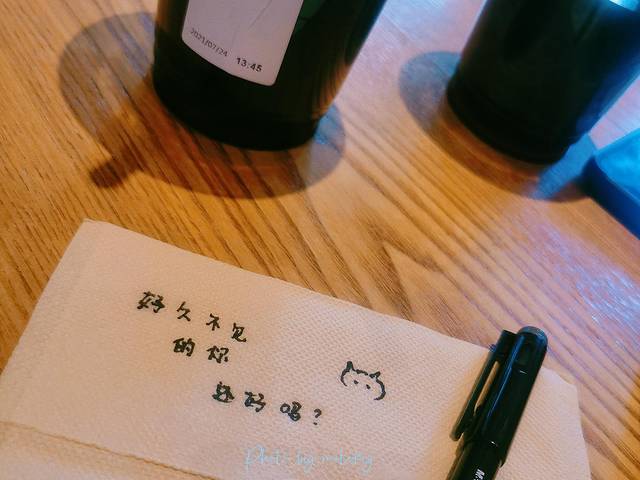 2021/07/24 13:45
好久不见
的你
还好吗?
Photo by